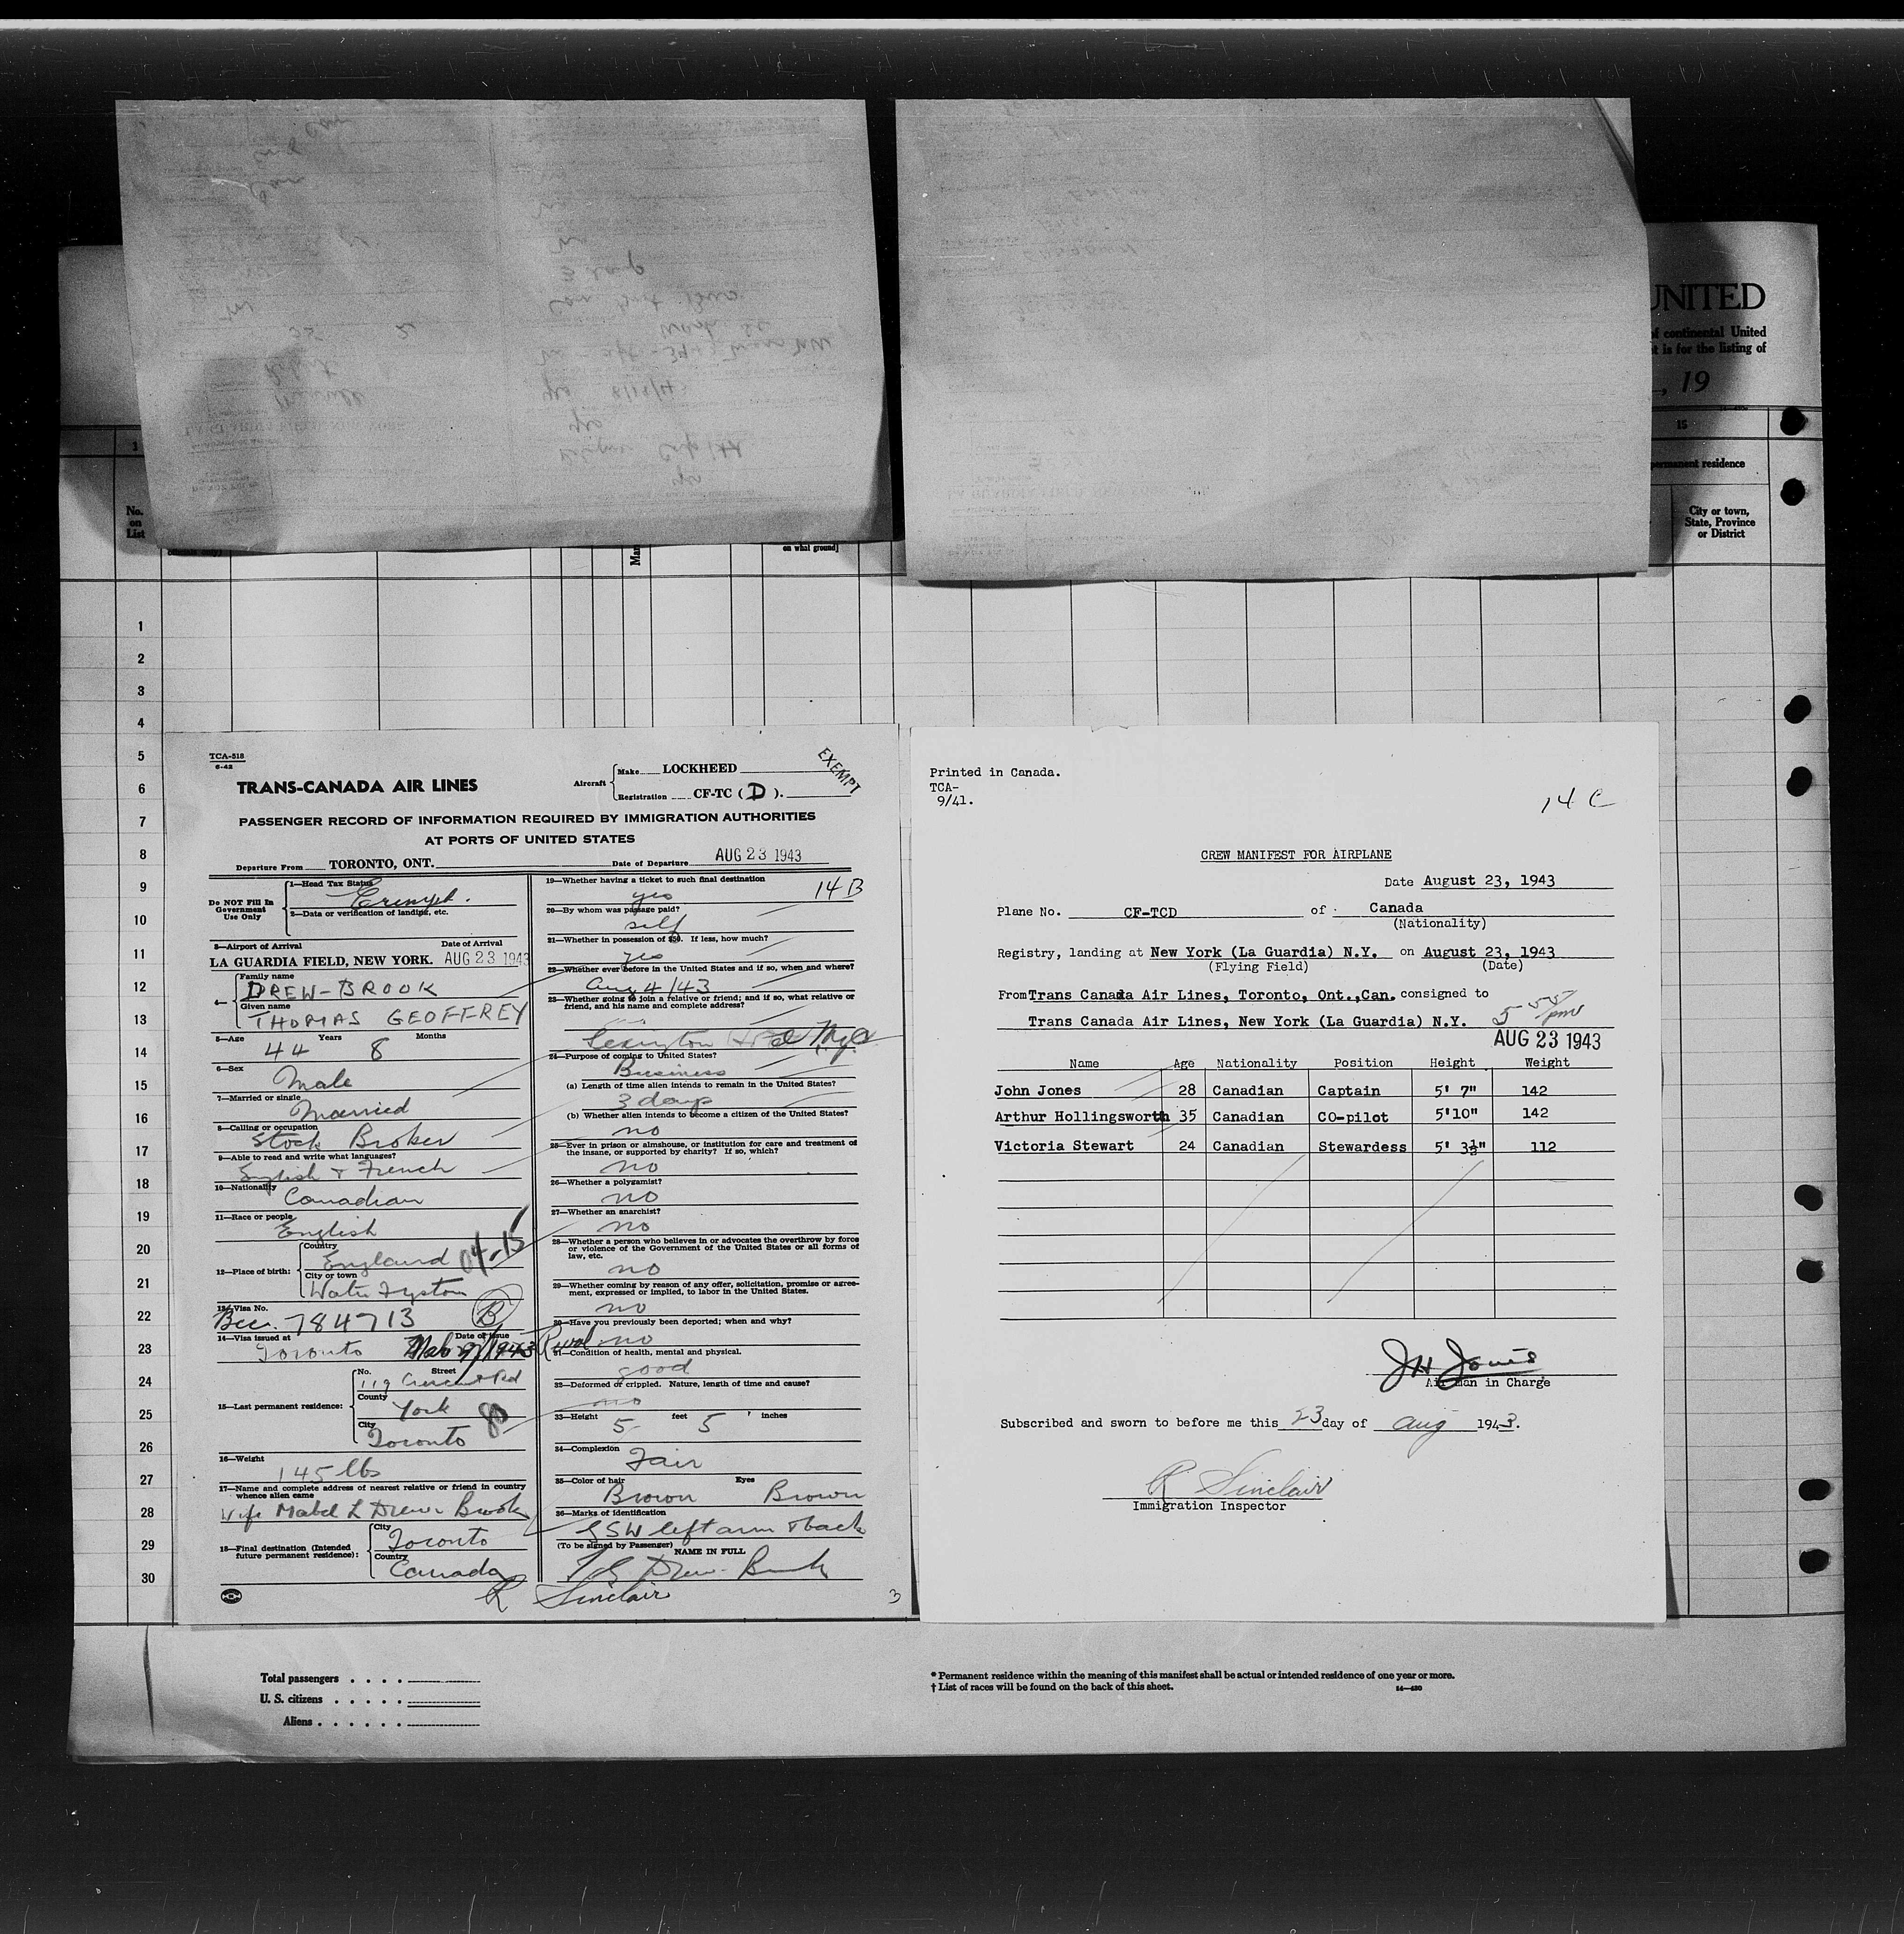 UNITED
of continental United
it is for the listing of
, 19
15
permanent residence
City or town,
State, Province
or District
1
No.
on
List
on what ground]
1
2
3
4
5
6
7
8
9
10
11
12
13
14
15
16
17
18
19
20
21
22
23
24
25
26
27
28
29
30
TCA-518
6-42
TRANS-CANADA AIR LINES
Aircraft Make LOCKHEED
Registration CF-TC ( D ).
EXEMPT
PASSENGER RECORD OF INFORMATION REQUIRED BY IMMIGRATION AUTHORITIES
AT PORTS OF UNITED STATES
Departure From TORONTO, ONT. Date of Departure AUG 23 1943
Do NOT Fill In
Government
Use Only
1—Head Tax Status
Exempt.
2—Data or verification of landing, etc.
3—Airport of Arrival Date of Arrival
LA GUARDIA FIELD, NEW YORK. AUG 23 1943
4— Family name
DREW-BROOK
Given name
THOMAS GEOFFREY
5—Age Years Months
44 8
6—Sex
Male
7—Married or single
Married
8—Calling or occupation
Stock Broker
9—Able to read and write what languages?
English & French
10—Nationality
Canadian
11—Race or people
English
12—Place of birth: Country
England 04-15
City or town
13—Visa No.
784713 B
14—Visa issued at Date of issue
Toronto
15—Last permanent residence: No. Street
119
County
York 80
City
Toronto
16—Weight
145 lbs
17—Name and complete address of nearest relative or friend in country
whence alien came
Wife Mabel L Drew Brook
18—Final destination (Intended
future permanent residence): City
Toronto
Country
Canada
19—Whether having a ticket to such final destination
yes 14 B
20—By whom was passage paid?
self
21—Whether in possession of $50. If less, how much?
yes
22—Whether ever before in the United States and if so, when and where?
Aug 4/43
23—Whether going to join a relative or friend; and if so, what relative or
friend, and his name and complete address?
Lexington Hotel N.Y.C.
24—Purpose of coming to United States?
Business
(a) Length of time alien intends to remain in the United States?
3 days
(b) Whether alien intends to become a citizen of the United States?
no
25—Ever in prison or almshouse, or institution for care and treatment of
the insane, or supported by charity? If so, which?
no
26—Whether a polygamist?
no
27—Whether an anarchist?
no
28—Whether a person who believes in or advocates the overthrow by force
or violence of the Government of the United States or all forms of
law, etc.
no
29—Whether coming by reason of any offer, solicitation, promise or agree-
ment, expressed or implied, to labor in the United States.
no
30—Have you previously been deported; when and why?
no
31—Condition of health, mental and physical.
good
32—Deformed or crippled. Nature, length of time and cause?
no
33—Height 5 feet 5 inches
34—Complexion
Fair
35—Color of hair Eyes
Brown Brown
36—Marks of identification
GSW left arm & back
(To be signed by Passenger) NAME IN FULL
T G Drew-Brook
R Sinclair
3
Printed in Canada.
TCA-
9/41.
14 C
CREW MANIFEST FOR AIRPLANE
Date August 23, 1943
Plane No. CF-TCD of Canada
(Nationality)
Registry, landing at New York (La Guardia) N.Y. on August 23, 1943
(Flying Field) (Date)
From Trans Canada Air Lines, Toronto, Ont.,Can. consigned to
Trans Canada Air Lines, New York (La Guardia) N.Y. 5 55 pm
AUG 23 1943
Name Age Nationality Position Height Weight
John Jones 28 Canadian Captain 5' 7" 142
Arthur Hollingsworth 35 Canadian CO-pilot 5'10" 142
Victoria Stewart 24 Canadian Stewardess 5' 3½" 112
JH Jones
Air Man in Charge
Subscribed and sworn to before me this 23 day of Aug 1943.
R Sinclair
Immigration Inspector
Total passengers . . . .
U. S. citizens . . . . .
Aliens . . . . . .
* Permanent residence within the meaning of this manifest shall be actual or intended residence of one year or more.
† List of races will be found on the back of this sheet. 14—480